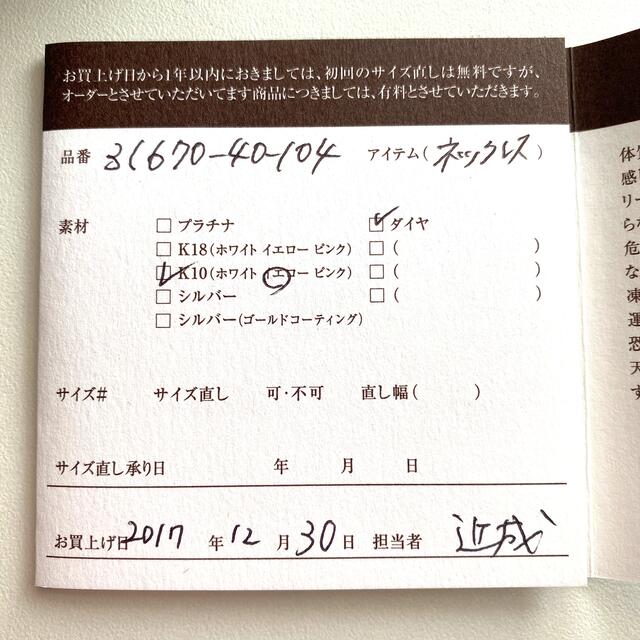 お買上げ日から1年以内におきましては、初回のサイズ直しは無料ですが、
オーダーとさせていただいてます商品につきましては、有料とさせていただきます。
品番 31670-40-104 アイテム(ネックレス)
素材 □プラチナ ☑ダイヤ
□K18(ホワイト イエロー ピンク) □( )
☑K10(ホワイト イエロー ピンク) □( )
□シルバー □( )
□シルバー(ゴールドコーティング)
サイズ# サイズ直し 可・不可 直し幅( )
サイズ直し承り日 年 月 日
お買上げ日 2017 年 12 月 30 日 担当者
体
感
リー
らな
危
な
凍
運
恐
天
す